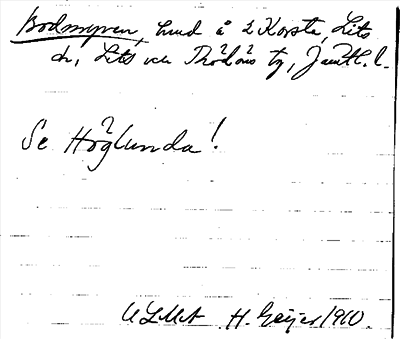 Bodmyren, hmd å 2 Korsta, Lits
sn, Lits och Rödöns tg, Jämtl. l.
Se Höglunda!
ULMA H. Geijer 1910.